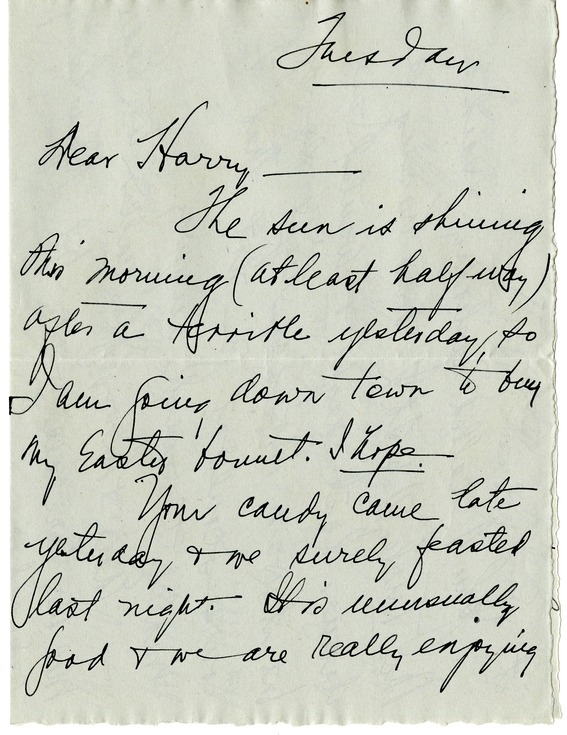 Tuesday
Dear Harry —
The sun is shining
this morning (at least half way)
after a terrible yesterday, so
I am going down town to buy
my Easter bonnet. I hope.
Your candy came late
yesterday & we surely feasted
last night. It is unusually
good & we are really enjoying